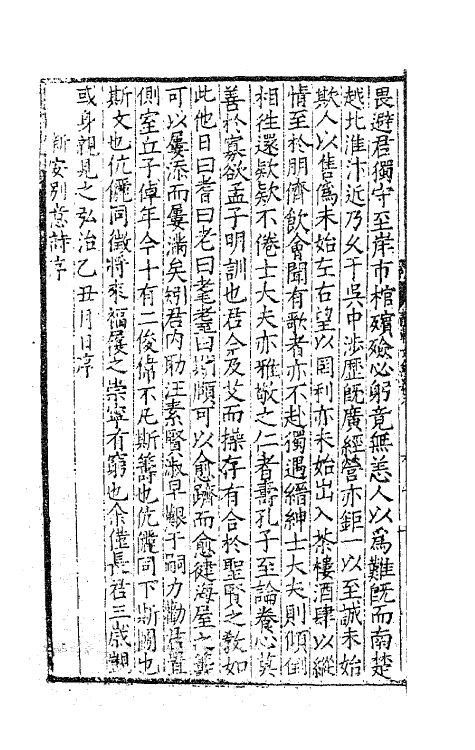 畏避君獨守至岸市棺殯殮必躬竟無恙人以爲難既而南楚
越北淮汴近乃久于吳中涉歷既廣經營亦鉅一以至誠未始
欺人以售僞未始左右望以罔利亦未始出入茶樓酒肆以縱
情至於朋儕飲會聞有歌者亦不赴獨遇縉紳士大夫則傾倒
相往還欵欵不倦士大夫亦雅敬之仁者壽孔子至論養心莫
善於寡欲孟子明訓也君今及艾而操存有合於聖賢之教如
此他日曰耆曰老曰耄耋曰期頤可以愈躋而愈健海屋之籌
可以屢添而屢滿矣矧君內助汪素賢淑早艱于嗣力勸君置
側室丘子倬年今十有二俊偉不凡斯籌也伉儷同下斯圖也
斯文也伉儷同徵將來福履之崇寧有窮也余僅長君三歲覩
或身親見之弘治乙丑月日序
新安別意詩序